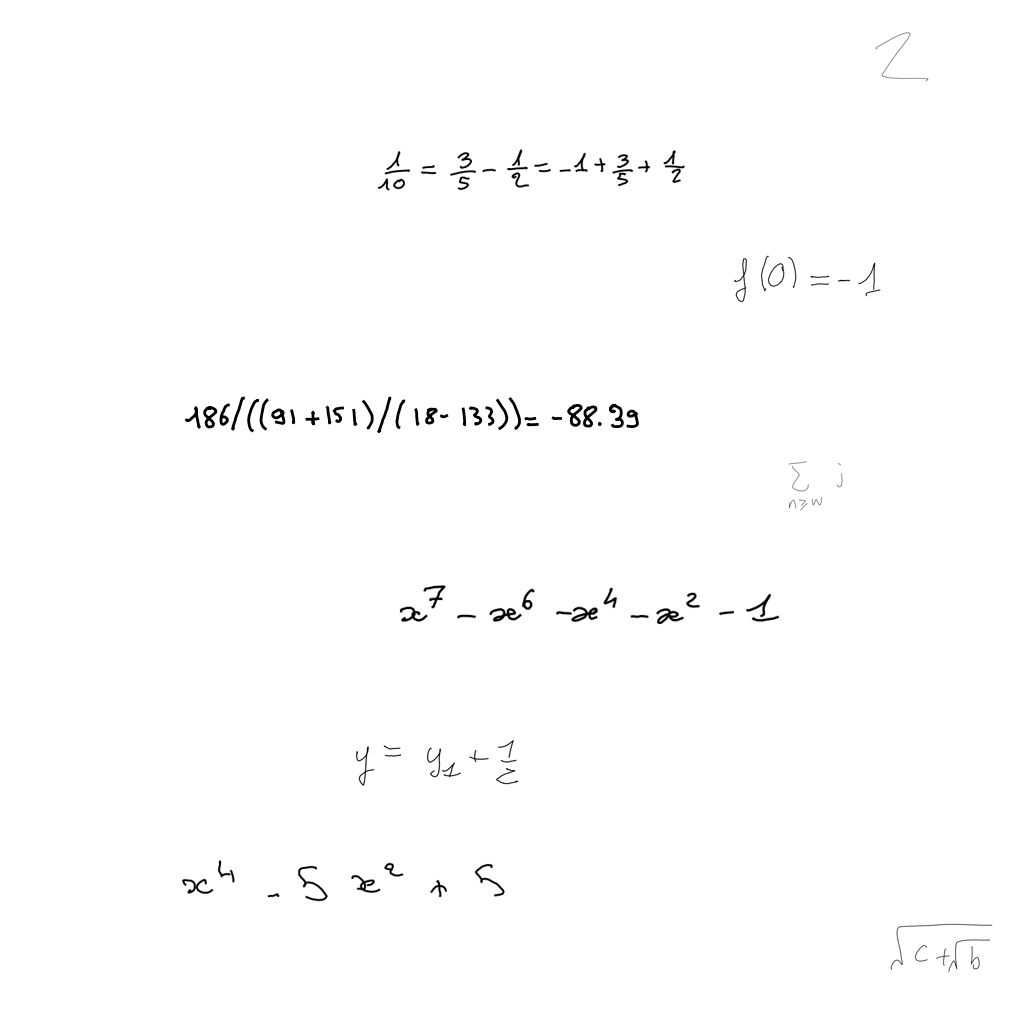 2
\frac{1}{10} = \frac{3}{5} - \frac{1}{2} = -1 + \frac{3}{5} + \frac{1}{2}
f(0) = -1
186/((91+151)/(18-133)) = -88.39
\sum_{n \geqslant w} j
x^7 - x^6 - x^4 - x^2 - 1
y = y_1 + \frac{1}{z}
x^4 - 5x^2 + 5
\sqrt{c + \sqrt{b}}